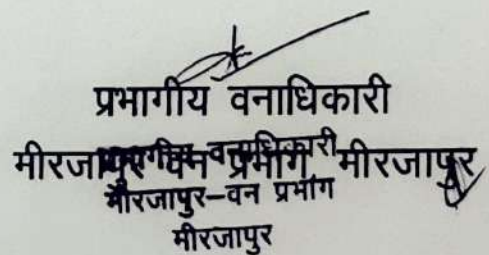 प्रभागीय वनाधिकारी
मीरजापुर वन प्रभाग, मीरजापुर
प्रभागीय वनाधिकारी
मीरजापुर-वन प्रभाग
मीरजापुर